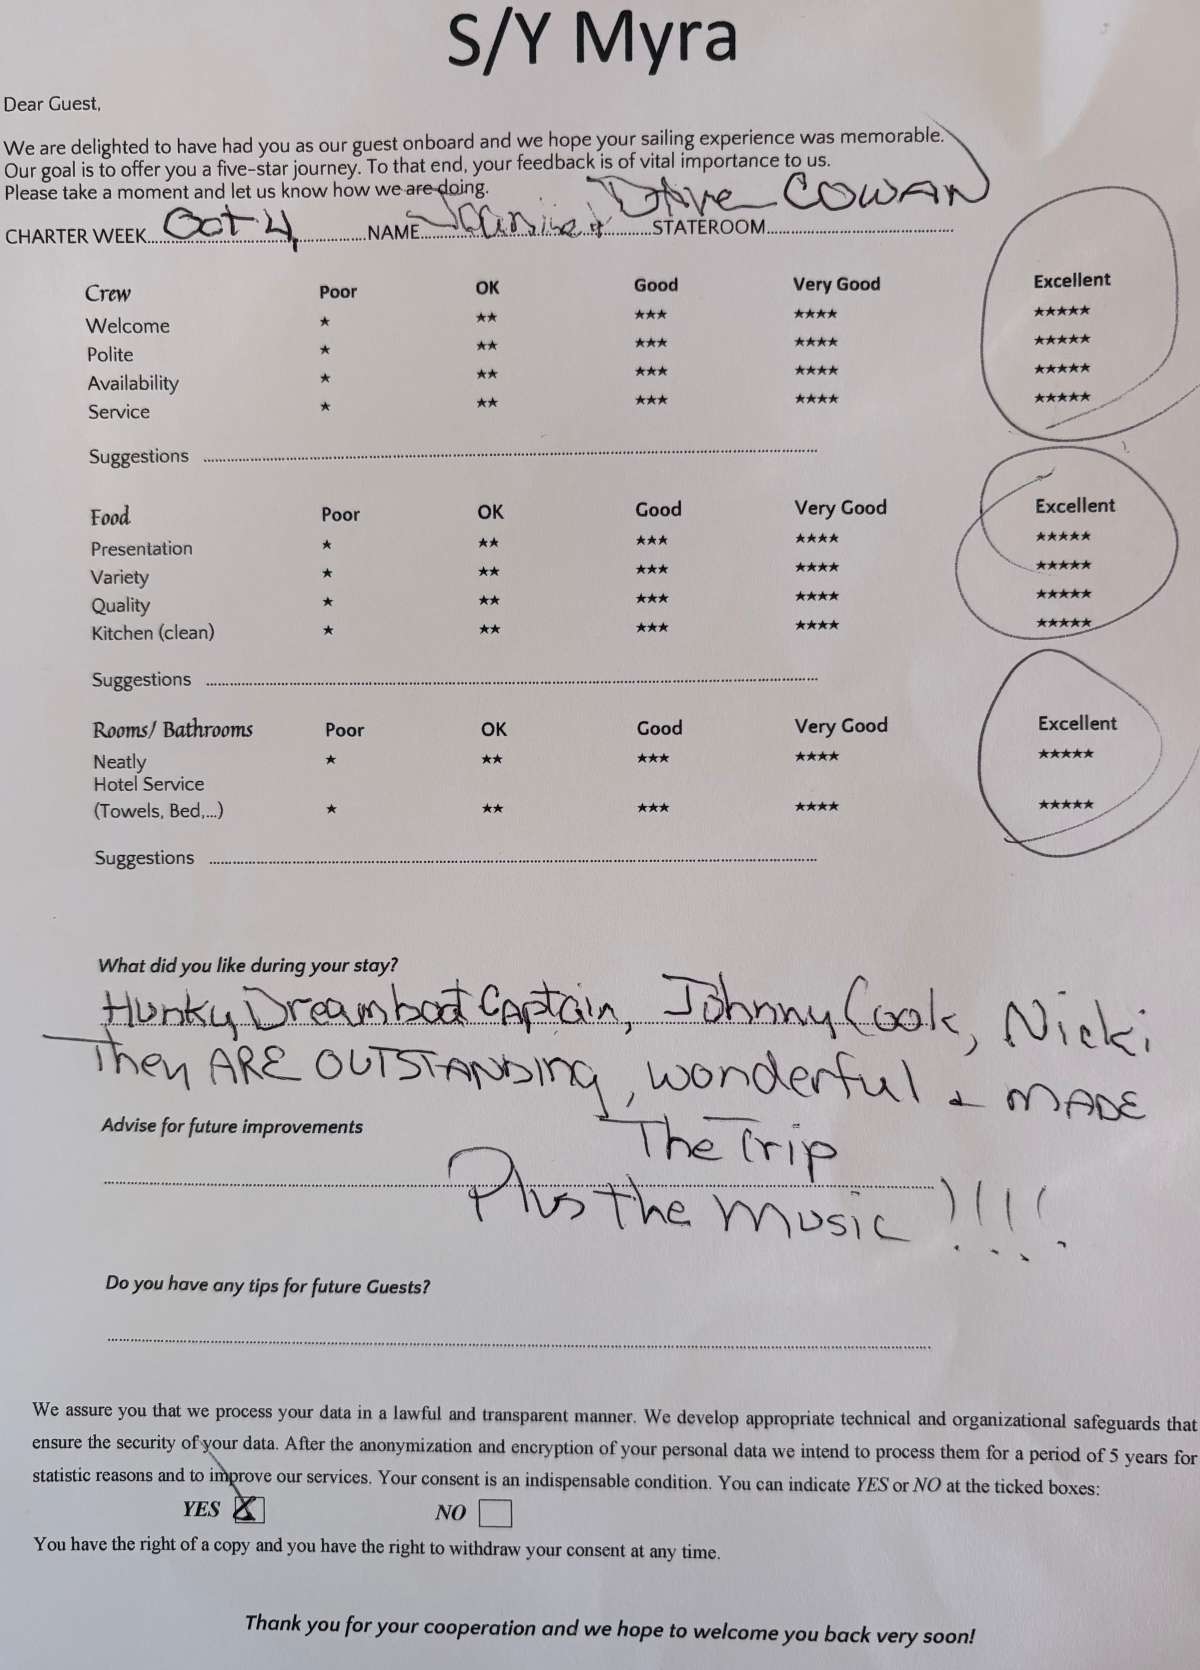 S/Y Myra
Dear Guest,
We are delighted to have had you as our guest onboard and we hope your sailing experience was memorable.
Our goal is to offer you a five-star journey. To that end, your feedback is of vital importance to us.
Please take a moment and let us know how we are doing.
CHARTER WEEK Oct 4, NAME & Dave COWAN STATEROOM
Crew Poor OK Good Very Good Excellent
Welcome ★ ★★ ★★★ ★★★★ ★★★★★
Polite ★ ★★ ★★★ ★★★★ ★★★★★
Availability ★ ★★ ★★★ ★★★★ ★★★★★
Service ★ ★★ ★★★ ★★★★ ★★★★★
Suggestions
Food Poor OK Good Very Good Excellent
Presentation ★ ★★ ★★★ ★★★★ ★★★★★
Variety ★ ★★ ★★★ ★★★★ ★★★★★
Quality ★ ★★ ★★★ ★★★★ ★★★★★
Kitchen (clean) ★ ★★ ★★★ ★★★★ ★★★★★
Suggestions
Rooms/ Bathrooms Poor OK Good Very Good Excellent
Neatly ★ ★★ ★★★ ★★★★ ★★★★★
Hotel Service
(Towels, Bed,...) ★ ★★ ★★★ ★★★★ ★★★★★
Suggestions
What did you like during your stay?
Hunky Dreamboat Captain, Johnny Cook, Nicki
They ARE OUTSTANDING, wonderful & MADE
Advise for future improvements
The Trip
Plus the music !!!!
Do you have any tips for future Guests?
We assure you that we process your data in a lawful and transparent manner. We develop appropriate technical and organizational safeguards that
ensure the security of your data. After the anonymization and encryption of your personal data we intend to process them for a period of 5 years for
statistic reasons and to improve our services. Your consent is an indispensable condition. You can indicate YES or NO at the ticked boxes:
YES X NO
You have the right of a copy and you have the right to withdraw your consent at any time.
Thank you for your cooperation and we hope to welcome you back very soon!